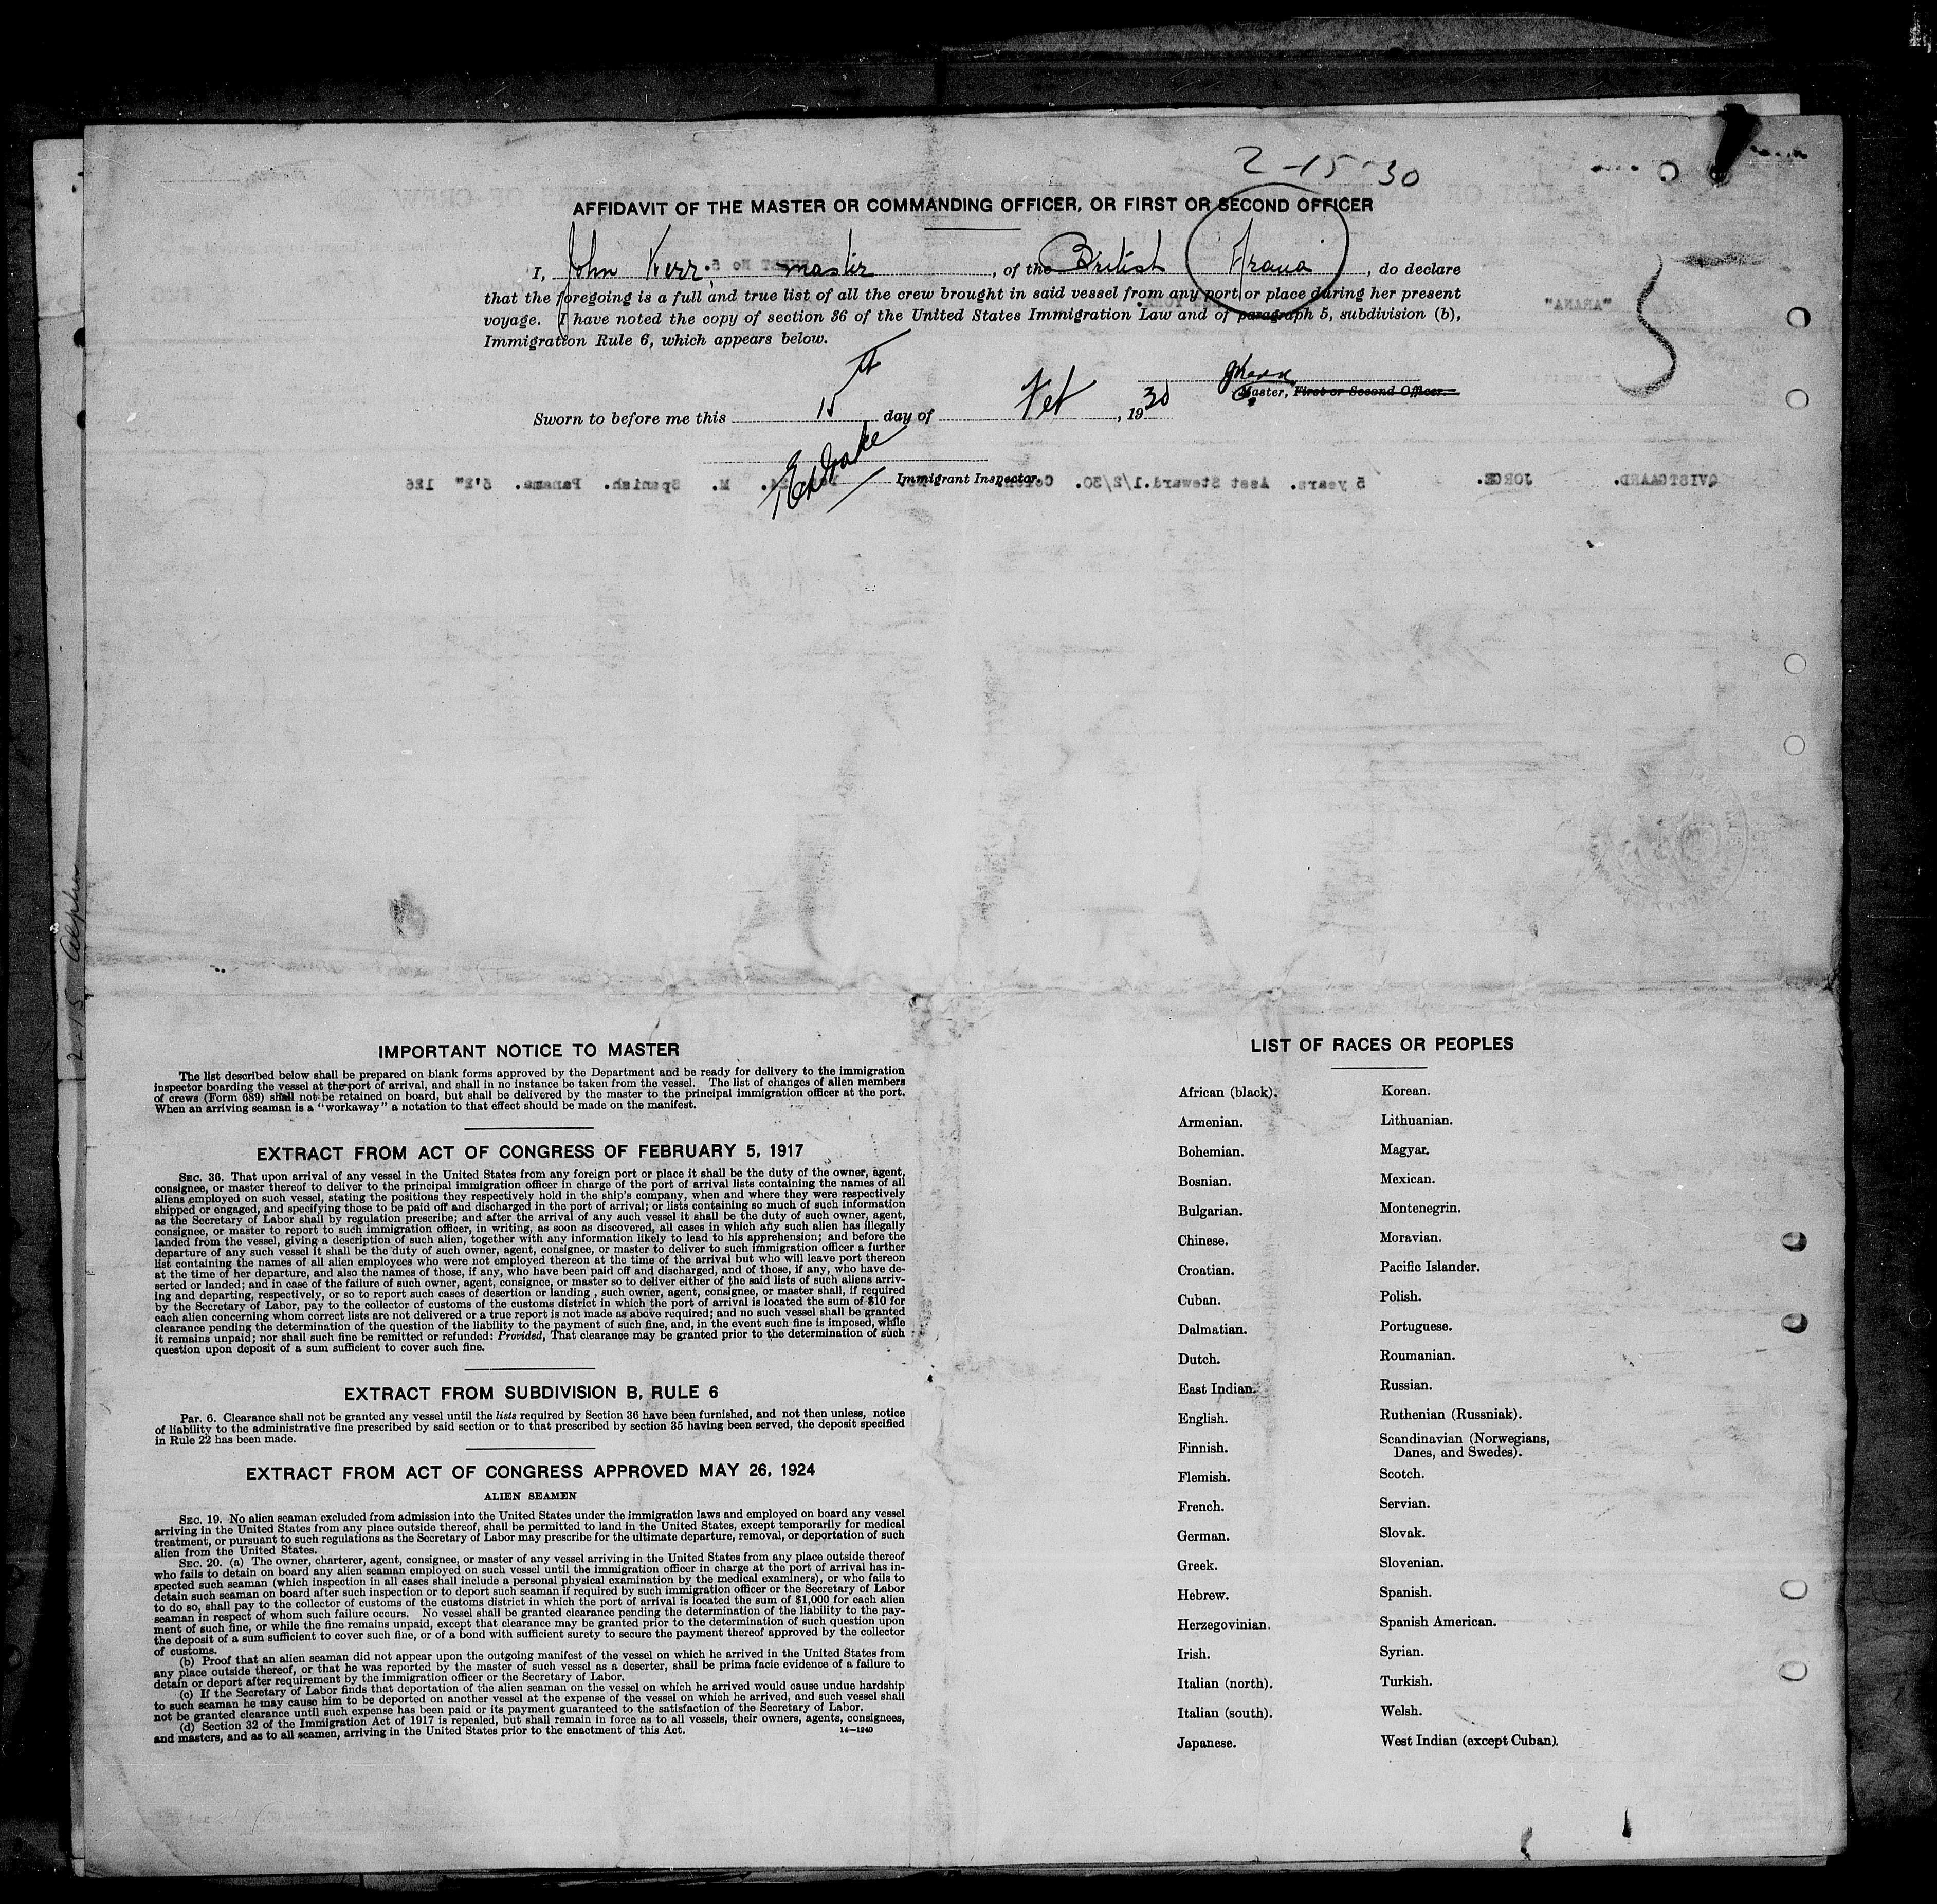 2-15-30
AFFIDAVIT OF THE MASTER OR COMMANDING OFFICER, OR FIRST OR SECOND OFFICER
I, John Kerr, master, of the British "Arana", do declare
that the foregoing is a full and true list of all the crew brought in said vessel from any port or place during her present
voyage. I have noted the copy of section 36 of the United States Immigration Law and of paragraph 5, subdivision (b),
Immigration Rule 6, which appears below.
5
Master, First or Second Officer.
Sworn to before me this 15th day of Feb, 1930
Immigrant Inspector.
"ARANA"
SHEET No 5.
QVISTGAARD. JORGE. 5 years. Asst Steward. 1/2/30. M. Spanish. Panama. 5'2" 126
2-15 Alpha
IMPORTANT NOTICE TO MASTER
The list described below shall be prepared on blank forms approved by the Department and be ready for delivery to the immigration
inspector boarding the vessel at the port of arrival, and shall in no instance be taken from the vessel. The list of changes of alien members
of crews (Form 689) shall not be retained on board, but shall be delivered by the master to the principal immigration officer at the port.
When an arriving seaman is a "workaway" a notation to that effect should be made on the manifest.
EXTRACT FROM ACT OF CONGRESS OF FEBRUARY 5, 1917
SEC. 36. That upon arrival of any vessel in the United States from any foreign port or place it shall be the duty of the owner, agent,
consignee, or master thereof to deliver to the principal immigration officer in charge of the port of arrival lists containing the names of all
aliens employed on such vessel, stating the positions they respectively hold in the ship's company, when and where they were respectively
shipped or engaged, and specifying those to be paid off and discharged in the port of arrival; or lists containing so much of such information
as the Secretary of Labor shall by regulation prescribe; and after the arrival of any such vessel it shall be the duty of such owner, agent,
consignee, or master to report to such immigration officer, in writing, as soon as discovered, all cases in which any such alien has illegally
landed from the vessel, giving a description of such alien, together with any information likely to lead to his apprehension; and before the
departure of any such vessel it shall be the duty of such owner, agent, consignee, or master to deliver to such immigration officer a further
list containing the names of all alien employees who were not employed thereon at the time of the arrival but who will leave port thereon
at the time of her departure, and also the names of those, if any, who have been paid off and discharged, and of those, if any, who have de-
serted or landed; and in case of the failure of such owner, agent, consignee, or master so to deliver either of the said lists of such aliens arriv-
ing and departing, respectively, or so to report such cases of desertion or landing , such owner, agent, consignee, or master shall, if required
by the Secretary of Labor, pay to the collector of customs of the customs district in which the port of arrival is located the sum of $10 for
each alien concerning whom correct lists are not delivered or a true report is not made as above required; and no such vessel shall be granted
clearance pending the determination of the question of the liability to the payment of such fine, and, in the event such fine is imposed, while
it remains unpaid; nor shall such fine be remitted or refunded: Provided, That clearance may be granted prior to the determination of such
question upon deposit of a sum sufficient to cover such fine.
EXTRACT FROM SUBDIVISION B, RULE 6
Par. 6. Clearance shall not be granted any vessel until the lists required by Section 36 have been furnished, and not then unless, notice
of liability to the administrative fine prescribed by said section or to that prescribed by section 35 having been served, the deposit specified
in Rule 22 has been made.
EXTRACT FROM ACT OF CONGRESS APPROVED MAY 26, 1924
ALIEN SEAMEN
SEC. 19. No alien seaman excluded from admission into the United States under the immigration laws and employed on board any vessel
arriving in the United States from any place outside thereof, shall be permitted to land in the United States, except temporarily for medical
treatment, or pursuant to such regulations as the Secretary of Labor may prescribe for the ultimate departure, removal, or deportation of such
alien from the United States.
SEC. 20. (a) The owner, charterer, agent, consignee, or master of any vessel arriving in the United States from any place outside thereof
who fails to detain on board any alien seaman employed on such vessel until the immigration officer in charge at the port of arrival has in-
spected such seaman (which inspection in all cases shall include a personal physical examination by the medical examiners), or who fails to
detain such seaman on board after such inspection or to deport such seaman if required by such immigration officer or the Secretary of Labor
to do so, shall pay to the collector of customs of the customs district in which the port of arrival is located the sum of $1,000 for each alien
seaman in respect of whom such failure occurs. No vessel shall be granted clearance pending the determination of the liability to the pay-
ment of such fine, or while the fine remains unpaid, except that clearance may be granted prior to the determination of such question upon
the deposit of a sum sufficient to cover such fine, or of a bond with sufficient surety to secure the payment thereof approved by the collector
of customs.
(b) Proof that an alien seaman did not appear upon the outgoing manifest of the vessel on which he arrived in the United States from
any place outside thereof, or that he was reported by the master of such vessel as a deserter, shall be prima facie evidence of a failure to
detain or deport after requirement by the immigration officer or the Secretary of Labor.
(c) If the Secretary of Labor finds that deportation of the alien seaman on the vessel on which he arrived would cause undue hardship
to such seaman he may cause him to be deported on another vessel at the expense of the vessel on which he arrived, and such vessel shall
not be granted clearance until such expense has been paid or its payment guaranteed to the satisfaction of the Secretary of Labor.
(d) Section 32 of the Immigration Act of 1917 is repealed, but shall remain in force as to all vessels, their owners, agents, consignees,
and masters, and as to all seamen, arriving in the United States prior to the enactment of this Act. 14—1240
LIST OF RACES OR PEOPLES
African (black).
Armenian.
Bohemian.
Bosnian.
Bulgarian.
Chinese.
Croatian.
Cuban.
Dalmatian.
Dutch.
East Indian.
English.
Finnish.
Flemish.
French.
German.
Greek.
Hebrew.
Herzegovinian.
Irish.
Italian (north).
Italian (south).
Japanese.
Korean.
Lithuanian.
Magyar.
Mexican.
Montenegrin.
Moravian.
Pacific Islander.
Polish.
Portuguese.
Roumanian.
Russian.
Ruthenian (Russniak).
Scandinavian (Norwegians,
Danes, and Swedes).
Scotch.
Servian.
Slovak.
Slovenian.
Spanish.
Spanish American.
Syrian.
Turkish.
Welsh.
West Indian (except Cuban).